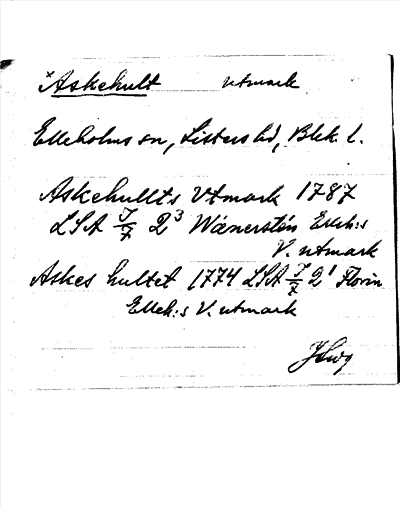 ×Askehult utmark
Elleholms sn, Listers hd, Blek. l.
Askehullts Utmark 1787
LSA J/7 2³ Wänerstén Elleh:s
V. utmark
Askes hultet 1774 LSA J/7 2¹ Florin
Elleh:s V. utmark